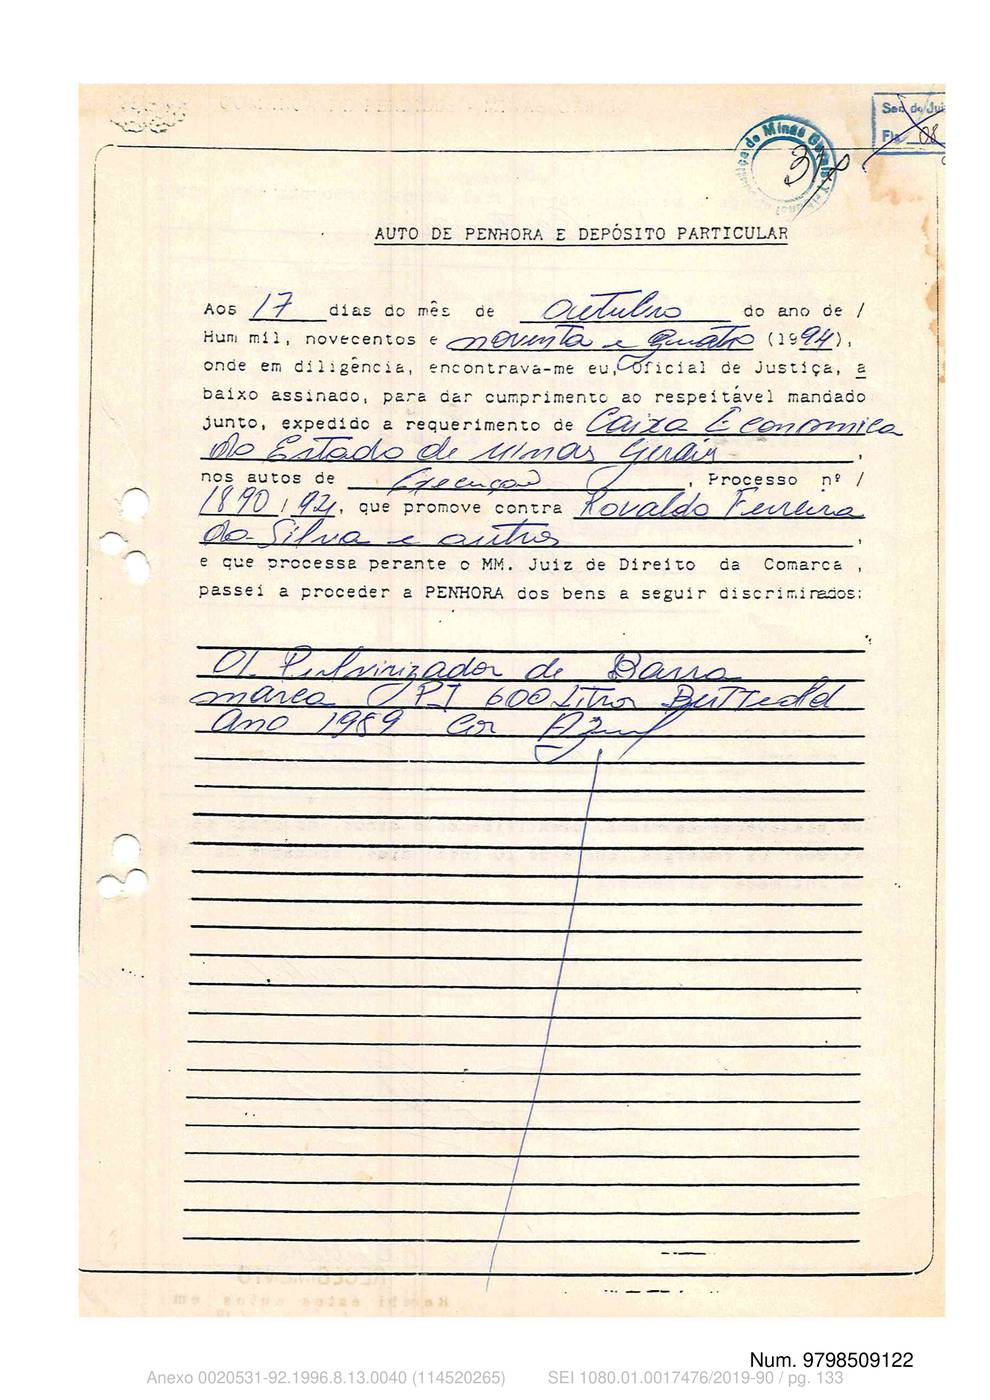 Sec. de Jui
Fls. 08
Justiça de Minas Gerais Tribunal
AUTO DE PENHORA E DEPÓSITO PARTICULAR
Aos 17 dias do mês de outubro do ano de /
Hum mil, novecentos e noventa e quatro (1994),
onde em diligência, encontrava-me eu, Oficial de Justiça, a
baixo assinado, para dar cumprimento ao respeitável mandado
junto, expedido a requerimento de Caixa Economica
do Estado de Minas Gerais,
nos autos de Execução, Processo nº /
1890/94, que promove contra Rovaldo Ferreira
da Silva e outros,
e que processa perante o MM. Juiz de Direito da Comarca,
passei a proceder a PENHORA dos bens a seguir discriminados:
01 Pulvirizador de Barra
marca PJ 600 Litros
Ano 1989 Cor Azul
RECEBIMENTO
Recebi estes autos em
Num. 9798509122
Anexo 0020531-92.1996.8.13.0040 (114520265) SEI 1080.01.0017476/2019-90 / pg. 133